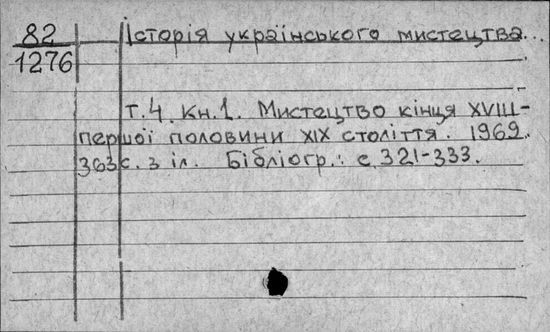 82
1276
Історія українського мистецтва...
Т.4. Кн.1. Мистецтво кінця XVIII-
першої половини XIX століття. 1969.
363с. з іл. Бібліогр.: с. 321-333.